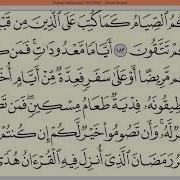 كُمُ ٱلصِّيَامُ كَمَا كُتِبَ عَلَى ٱلَّذِينَ مِن قَبْ
كُمْ تَتَّقُونَ ١٨٣ أَيَّامًا مَّعْدُودَٰتٍ فَمَن
كُم مَّرِيضًا أَوْ عَلَىٰ سَفَرٍ فَعِدَّةٌ مِّنْ أَيَّامٍ أُخَ
طِيقُونَهُۥ فِدْيَةٌ طَعَامُ مِسْكِينٍ فَمَن
لَّهُۥ وَأَن تَصُومُوا۟ خَيْرٌ لَّكُمْ إِن كُنتُمْ
رُ رَمَضَانَ ٱلَّذِىٓ أُنزِلَ فِيهِ ٱلْقُرْءَانُ هُدًى